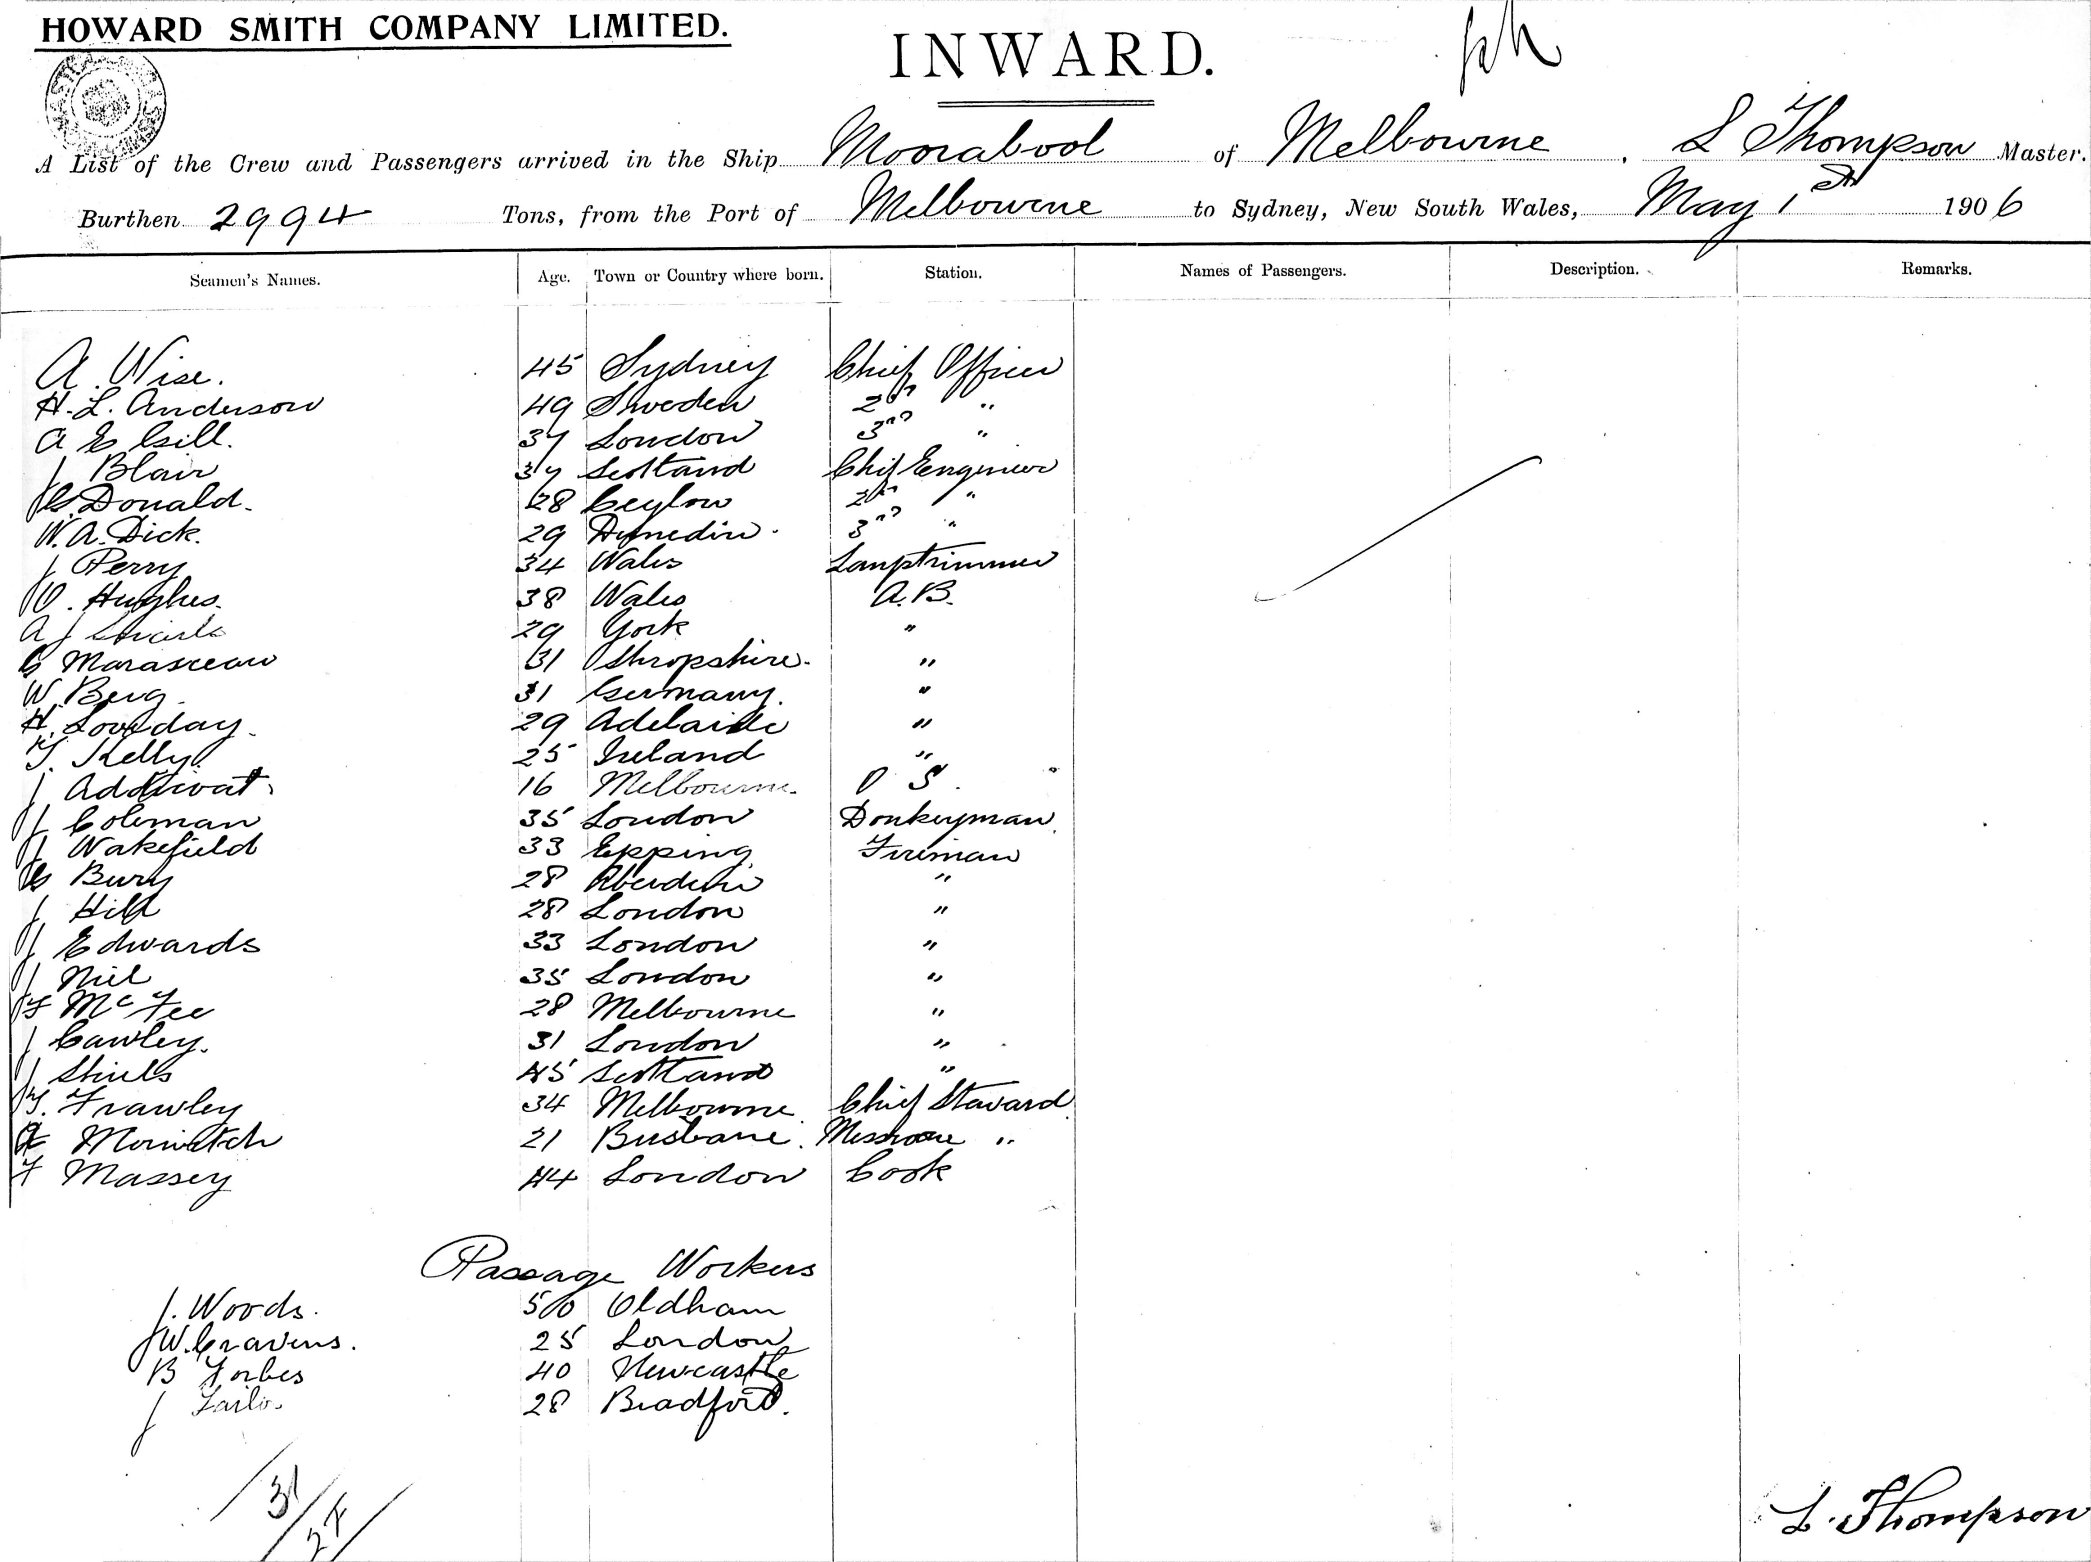 HOWARD SMITH COMPANY LIMITED.
INWARD.
A List of the Crew and Passengers arrived in the Ship Moorabool of Melbourne . L Thompson Master.
Burthen 2994 Tons, from the Port of Melbourne to Sydney, New South Wales, May 1st 1906
Seamen's Names. Age. Town or Country where born. Station. Names of Passengers. Description. Remarks.
A. Wise. 45 Sydney Chief Officer
H. L. Anderson 49 Sweden 2nd "
A E Gill. 37 London 3rd "
J Blair 37 Scotland Chif Engineer
G. Donald. 28 Ceylon 2nd "
W. A. Dick. 29 Dunedin. 3rd "
J Perry 34 Wales Lamptrimmer
O. Hughes. 38 Wales A.B.
A J 29 York "
G 31 Shropshire. "
W. Berg. 31 Germany. "
H. Loveday. 29 Adelaide "
T. Kelly. 25 Ireland "
J 16 Melbourne. O S.
J Coleman 35 London Donkeyman.
J Wakefield 33 Epping. Fireman
G Bury 28 Aberdeen "
J Hill 28 London "
J Edwards 33 London "
J Niel 35 London "
F McFee 28 Melbourne "
J Cawley. 31 London "
J Shiels 45 Scotland "
T. Frawley 34 Melbourne Chief Steward
Morwitch 21 Brisbane. Messroom "
F Massey 44 London Cook
Passage Workers
J. Woods. 50 Oldham
W. Cravens. 25 London
B Forbes 40 Newcastle
J 28 Bradford.
31
27
L. Thompson